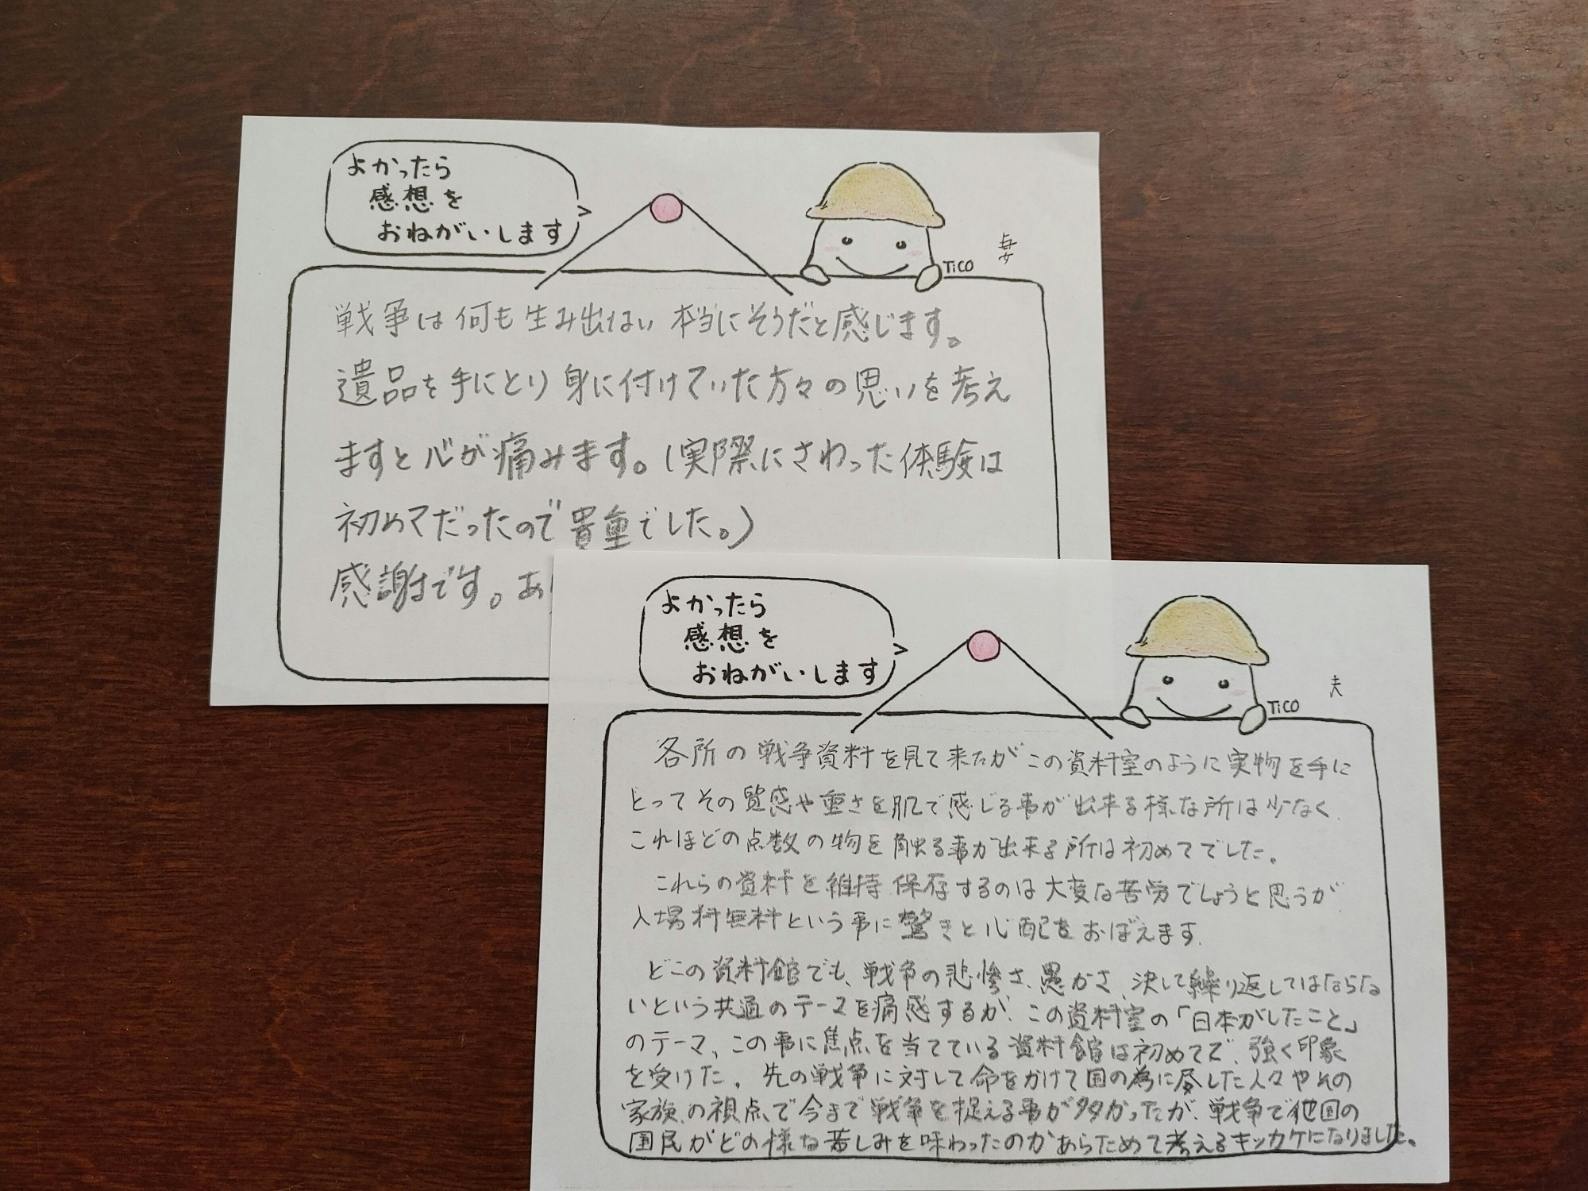 よかったら
感想を
おねがいします
TiCO
妻
戦争は何も生み出さない 本当にそうだと感じます。
遺品を手にとり身に付けていた方々の思いを考え
ますと心が痛みます。(実際にさわった体験は
初めてだったので貴重でした。)
感謝です。あ
よかったら
感想を
おねがいします
TiCO
夫
各所の戦争資料を見て来たがこの資料室のように実物を手に
とってその質感や重さを肌で感じる事が出来る様な所は少なく
これほどの点数の物を触る事が出来る所は初めてでした。
これらの資料を維持保存するのは大変な苦労でしょうと思うが
入場料無料という事に驚きと心配をおぼえます。
どこの資料館でも、戦争の悲惨さ、愚かさ、決して繰り返してはならな
いという共通のテーマを痛感するが、この資料室の「日本がしたこと」
のテーマ、この事に焦点を当てている資料館は初めてで、強く印象
を受けた。先の戦争に対して命をかけて国の為に尽した人々やその
家族、の視点で今まで戦争を捉える事が多かったが、戦争で他国の
国民がどの様な苦しみを味わったのかあらためて考えるキッカケになりました。